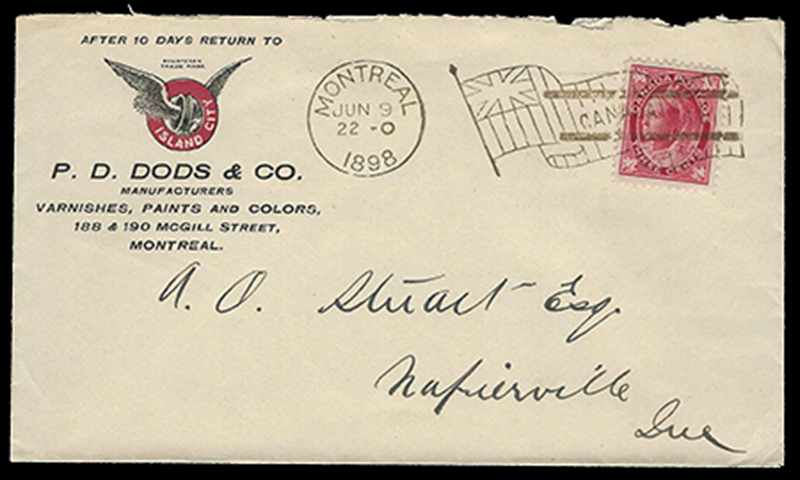 AFTER 10 DAYS RETURN TO
REGISTERED
TRADE MARK
ISLAND CITY
P. D. DODS & CO.
MANUFACTURERS
VARNISHES, PAINTS AND COLORS,
188 & 190 MCGILL STREET,
MONTREAL.
MONTREAL
JUN 9
22 - O
1898
CANADA POSTAGE
THREE CENTS
A. O. Stuart Esq.
Napierville
Que